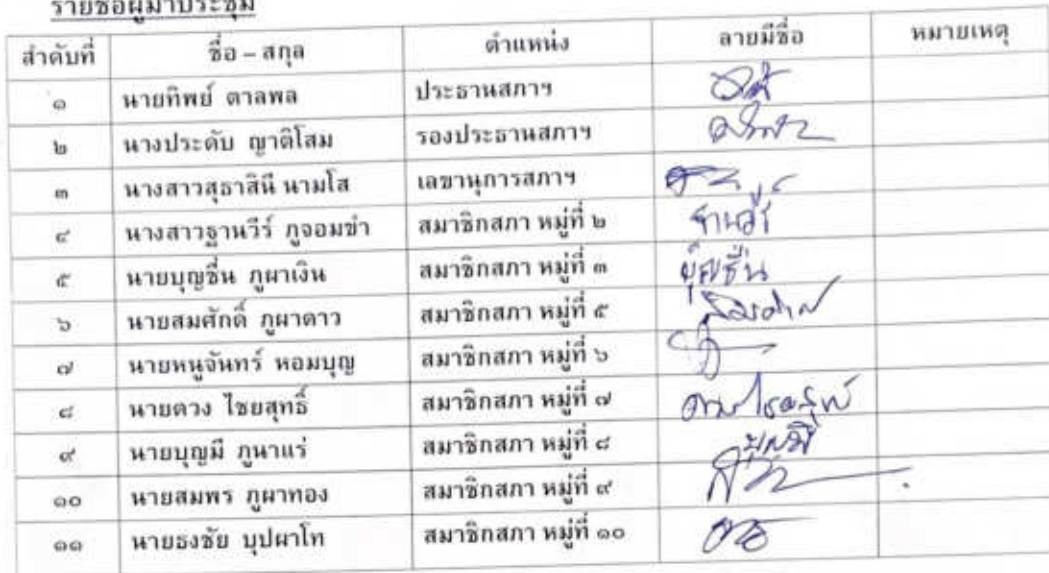 รายชื่อผู้มาประชุม
สำดับที่ ชื่อ – สกุล ตำแหน่ง ลายมีชื่อ หมายเหตุ
๑ นายทิพย์ ตาลพล ประธานสภาฯ
๒ นางประดับ ญาติโสม รองประธานสภาฯ
๓ นางสาวสุธาสินี นามโส เลขานุการสภาฯ
๔ นางสาวฐานวีร์ ภูจอมขำ สมาชิกสภา หมู่ที่ ๒ ฐานวีร์
๕ นายบุญชื่น ภูผาเงิน สมาชิกสภา หมู่ที่ ๓ บุญชื่น
๖ นายสมศักดิ์ ภูผาดาว สมาชิกสภา หมู่ที่ ๕
๗ นายหนูจันทร์ หอมบุญ สมาชิกสภา หมู่ที่ ๖
๘ นายดวง ไชยสุทธิ์ สมาชิกสภา หมู่ที่ ๗
๙ นายบุญมี ภูนาแร่ สมาชิกสภา หมู่ที่ ๘ บุญมี
๑๐ นายสมพร ภูผาทอง สมาชิกสภา หมู่ที่ ๙
๑๑ นายธงชัย บุปผาโท สมาชิกสภา หมู่ที่ ๑๐